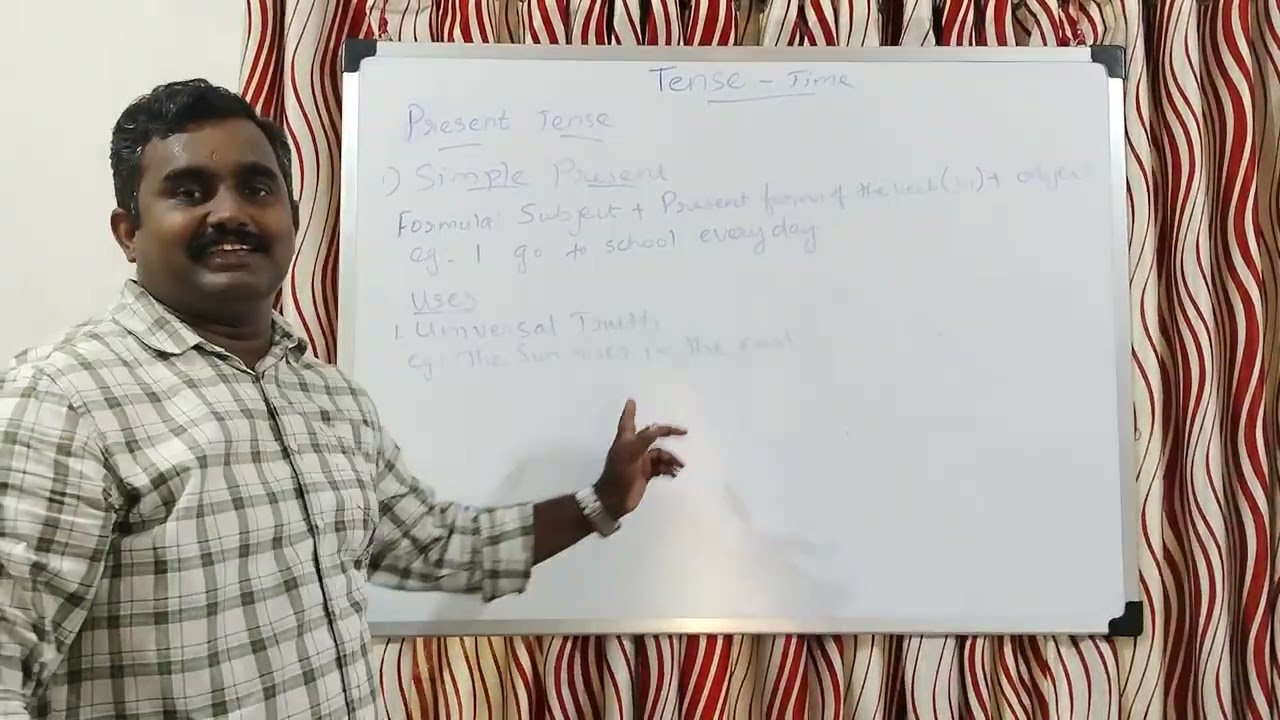 Tense - Time
Present Tense
1) Simple Present
Formula: Subject + Present form of the verb (V1) + object
eg. I go to school everyday
Uses
1. Universal Truth
eg: The Sun rises in the east.